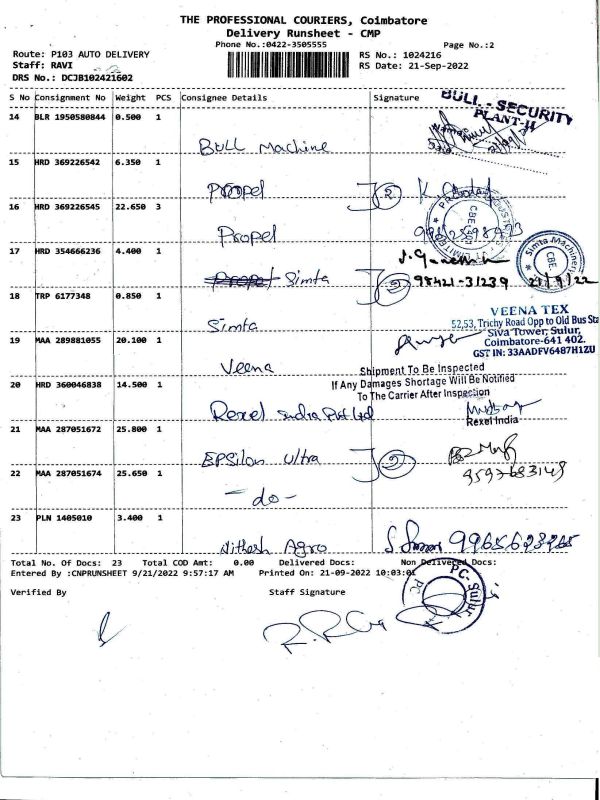 THE PROFESSIONAL COURIERS, Coimbatore
Delivery Runsheet - CMP
Phone No.:0422-3505555
Page No.:2
Route: P103 AUTO DELIVERY
RS No.: 1024216
Staff: RAVI
RS Date: 21-Sep-2022
DRS No.: DCJB102421602
S No Consignment No Weight PCS Consignee Details Signature
BULL - SECURITY
PLANT-II
14 BLR 1950580844 0.500 1
Bull Machine
15 HRD 369226542 6.350 1
Propel
16 HRD 369226545 22.650 3
Propel
17 HRD 354666236 4.400 1
Propel Simta
98421-31239
Simta Machinery
CBE
18 TRP 6177348 0.850 1
Simta
VEENA TEX
52,53, Trichy Road Opp to Old Bus Sta
Siva Tower, Sulur,
Coimbatore-641 402.
GST IN: 33AADFV6487H1ZU
19 MAA 289881055 20.100 1
Veena
Shipment To Be Inspected
If Any Damages Shortage Will Be Notified
To The Carrier After Inspection
20 HRD 360046838 14.500 1
Rexel India Pvt Ltd
Rexel India
21 MAA 287051672 25.800 1
EPSilon Ultra
22 MAA 287051674 25.650 1
- do -
23 PLN 1405010 3.400 1
Nithesh Agro
Total No. Of Docs: 23 Total COD Amt: 0.00 Delivered Docs: Non Delivered Docs:
Entered By :CNPRUNSHEET 9/21/2022 9:57:17 AM Printed On: 21-09-2022 10:03:01
PC-Sulur
Verified By Staff Signature